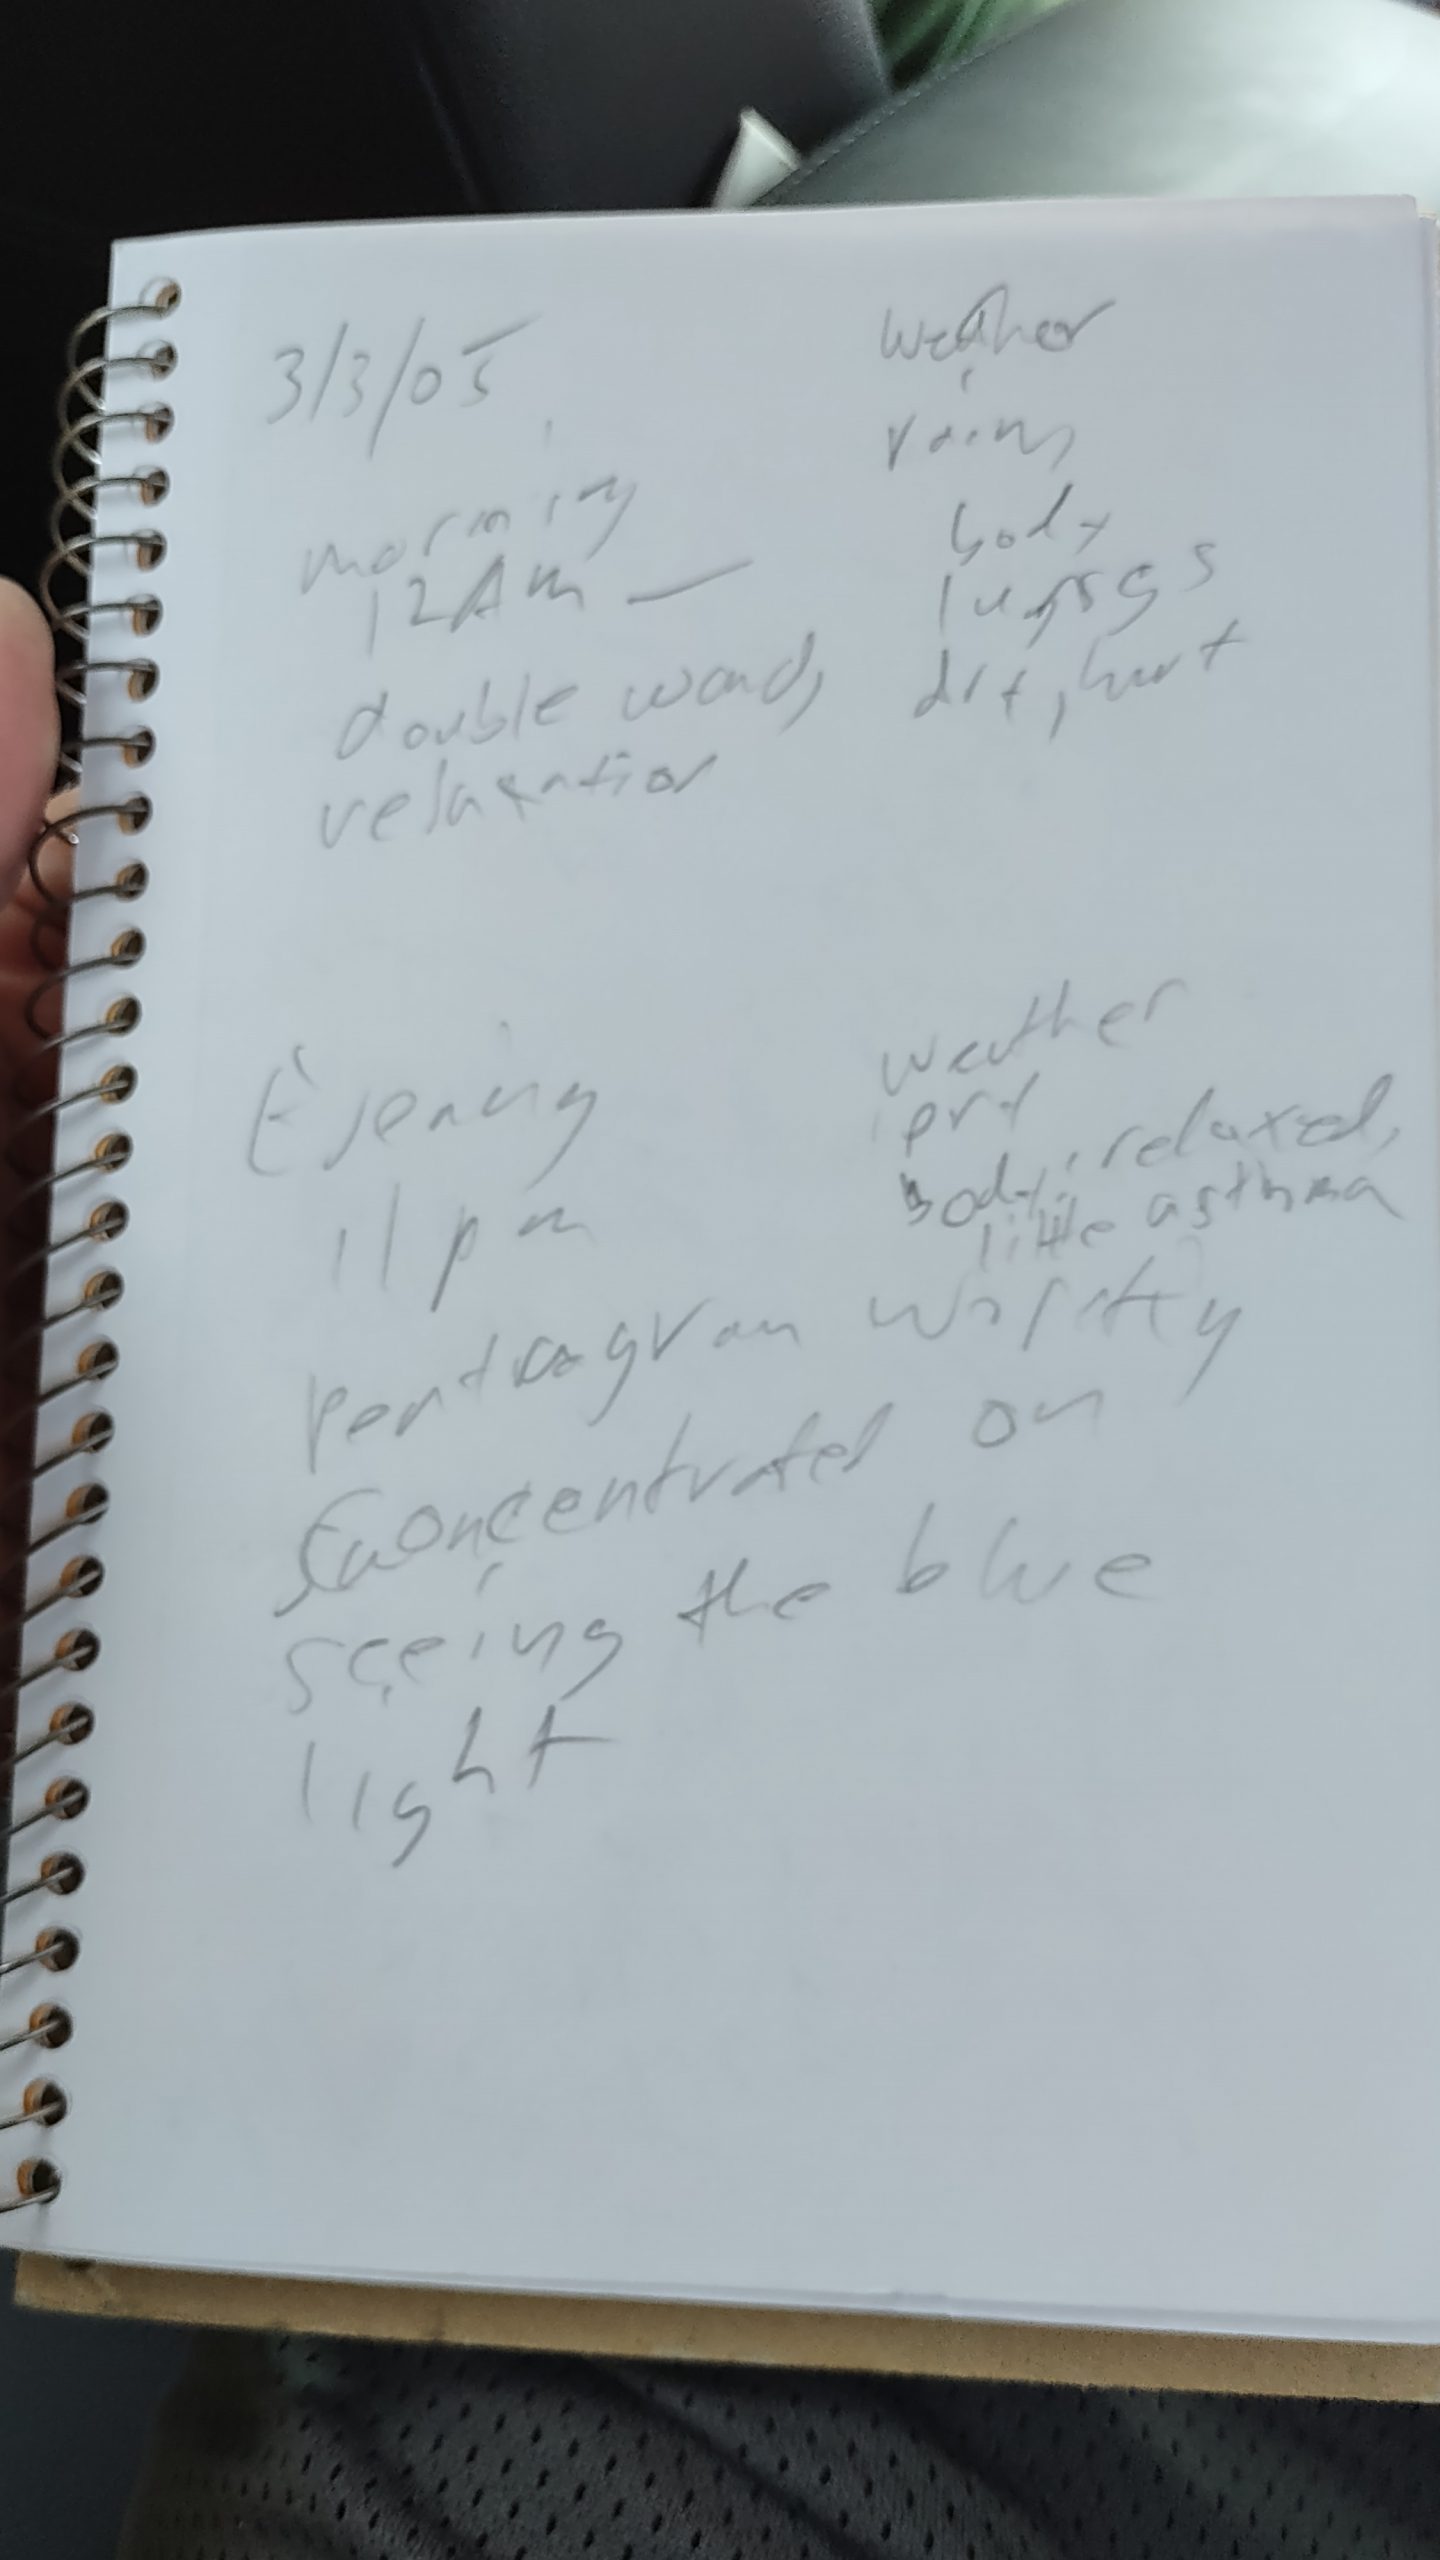 3/3/05
weather
rainy
morning
12 Am —
body
lungs
hurt
double wand,
relaxation
Evening
11 pm
weather
body: relaxed,
little asthma
pentagram
concentrated on
seeing the blue
light